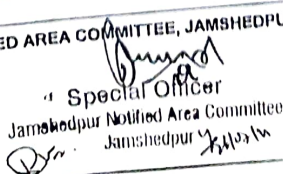 ED AREA COMMITTEE, JAMSHEDPU
Special Officer
Jamshedpur Notified Area Committee
Jamshedpur